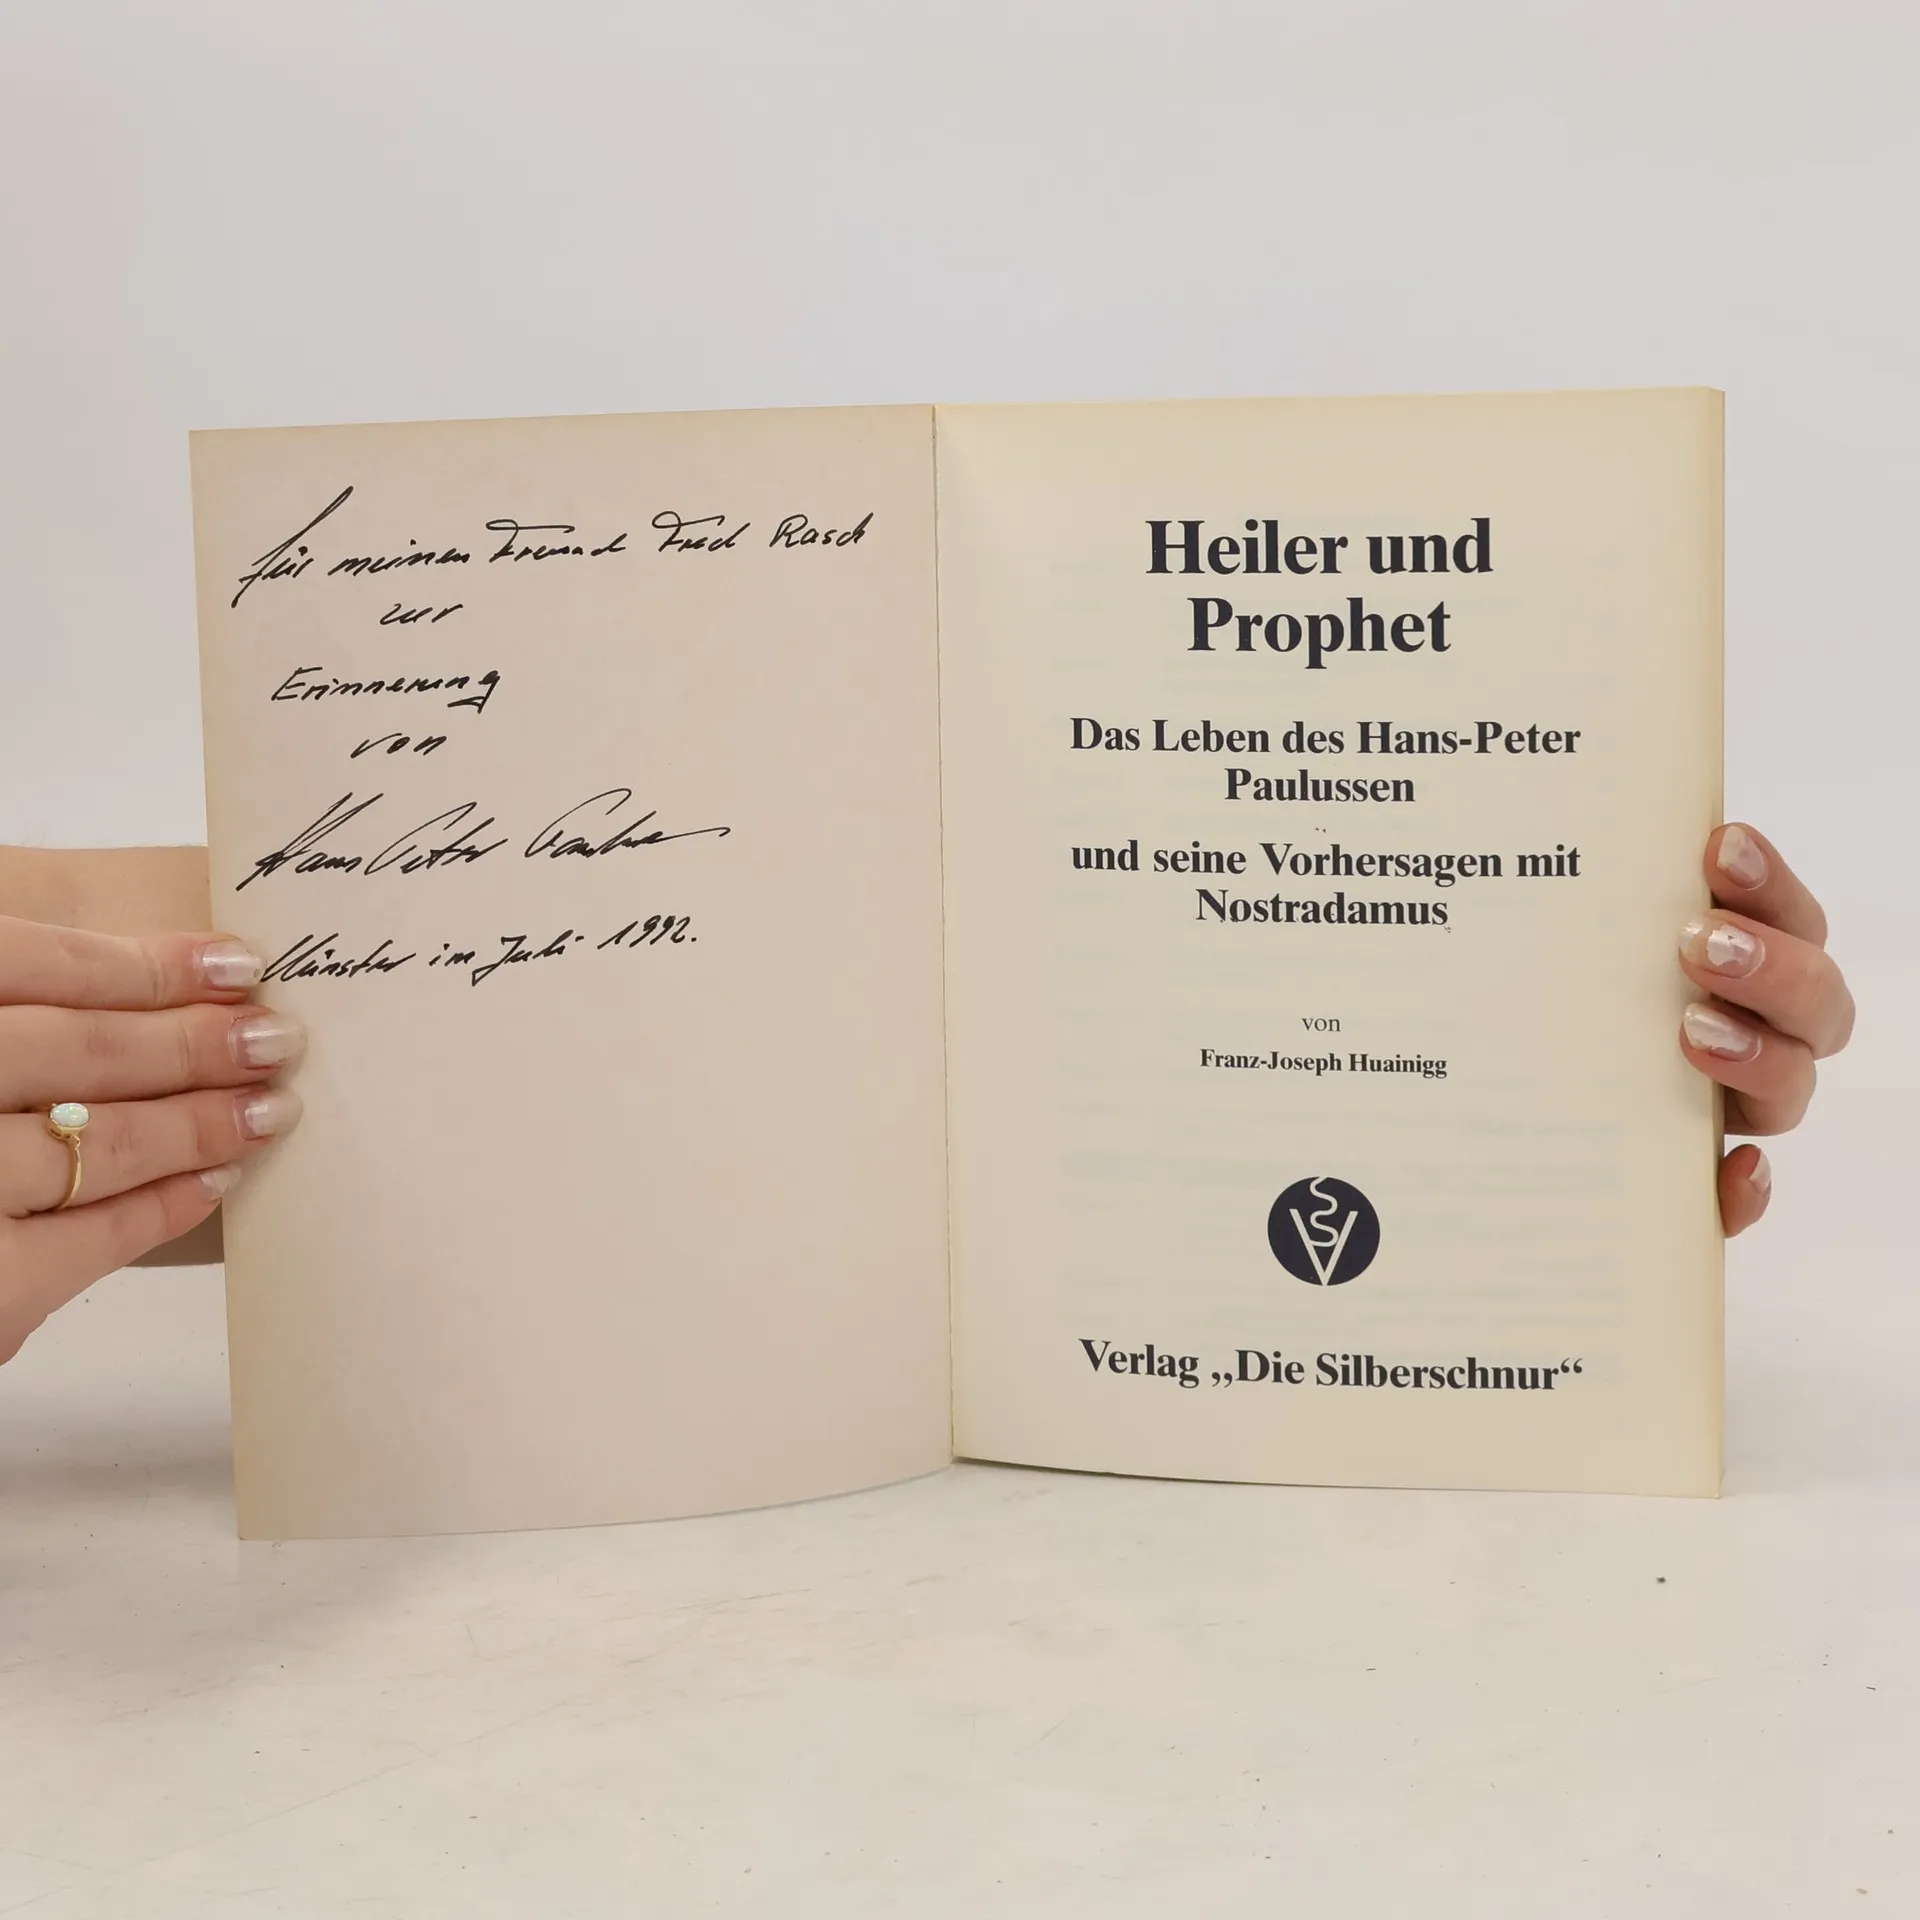 für meinen Freund Fred Rasch
zur
Erinnerung
von
Hans Peter Paulussen
Münster im Juli 1992.
Heiler und
Prophet
Das Leben des Hans-Peter
Paulussen
und seine Vorhersagen mit
Nostradamus
von
Franz-Joseph Huainigg
Verlag „Die Silberschnur“